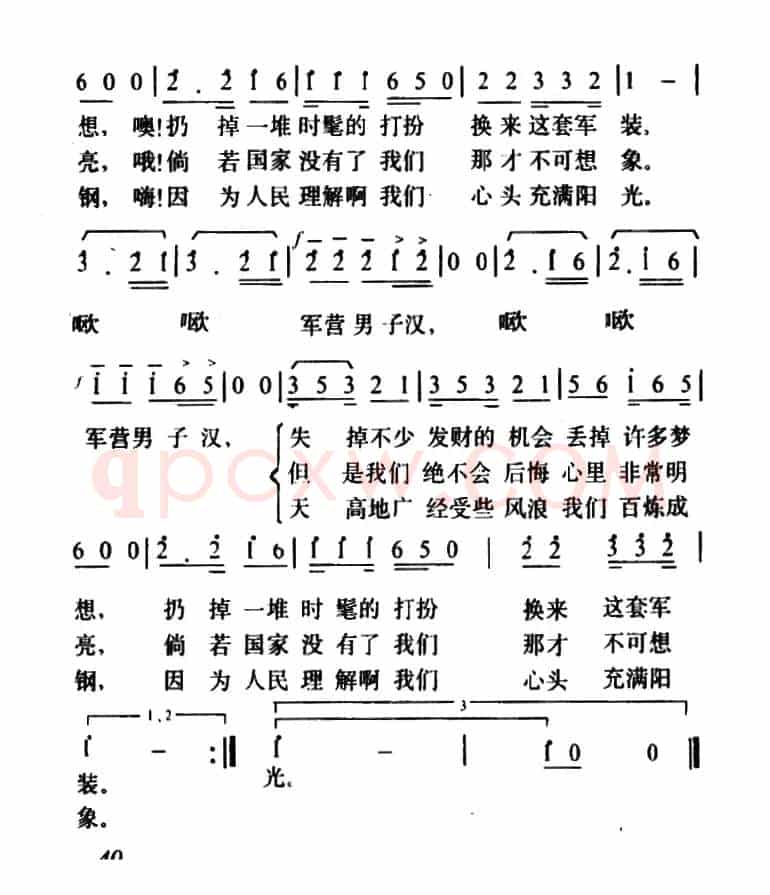 6 0 0 | 2 . 2 1 6 | 1 1 1 6 5 0 | 2 2 3 3 2 | 1 — |
想，噢!扔 掉一堆时髦的打扮 换来这套军 装，
亮，哦!倘 若国家没有了我们 那才不可想 象。
钢，嗨!因 为人民理解啊我们 心头充满阳 光。
3 . 2 1 | 3 . 2 1 | f 2 2 2 1 2 | 0 0 | 2 . 1 6 | 2 . 1 6 |
噉 噉 军营男子汉， 噉 噉
f 1 1 1 6 5 | 0 0 | 3 5 3 2 1 | 3 5 3 2 1 | 5 6 1 6 5 |
军营男子汉， 失 掉不少 发财的 机会 丢掉 许多梦
但 是我们 绝不会 后悔 心里 非常明
天 高地广 经受些 风浪 我们 百炼成
qpcxw.com
6 0 0 | 2 . 2 1 6 | 1 1 1 6 5 0 | 2 2 3 3 2 |
想， 扔 掉一堆时髦的打扮 换来 这套军
亮， 倘 若国家没有了我们 那才 不可想
钢， 因 为人民理解啊我们 心头 充满阳
1、2 3
1 — :‖ 1 — | 1 0 0 ‖
装。 光。
象。